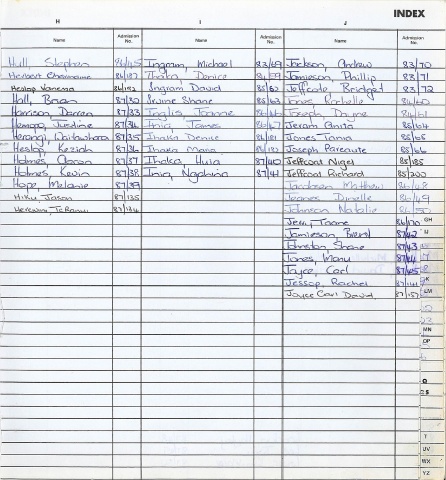 INDEX
H I J
Name Admission No. Name Admission No. Name Admission No.
Hull, Stephen 86/45 Ingram, Michael 83/69 Jackson, Andrew 83/70
Herbert Charmaine 86/187 Ihaka, Denice 84/59 Jamieson, Phillip 83/71
Heslop Vanessa 86/192 Ingram David 85/62 Jeffcote Bridget 83/72
Hall, Brian 87/30 Irvine Shane 85/63 Jones, Rachelle 84/60
Harrison, Darren 87/33 Inglis Joanne 86/46 Joseph 84/61
Justine 87/34 James 86/47 Jeram Anita 85/64
87/35 Ihaka Denice 86/181 Jones Tania 85/65
Heslop, Keziah 87/36 Ihaka Maria 86/182 Joseph Pareaute 85/66
Holmes, 87/37 Ihaka, Huia 87/40 Jeffcoat Nigel 85/185
Holmes, Kevin 87/38 87/41 Jeffcoat Richard 85/200
Hope, Melanie 87/39 Jacobson Mathew 86/48
Hiku, Jason 87/135 Jeanes Danielle 86/49
Herewini, Te Rawi 87/144 Johnson Natalie
86/170 GH
Jamieson, 87/42 IJ
Johnston, Shane 87/43
Jones, Manu 87/44
Joyce, Carl 87/45
Jessop, Rachel 87/141 K
Joyce Carl David 87/157 LM
MN
OP
Q
T
UV
WX
YZ